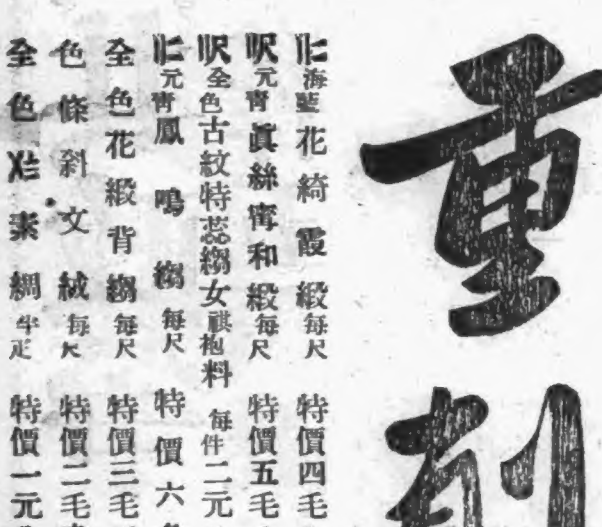 重
海藍花綺霞緞每尺特價四毛
元青眞絲寗和緞每尺特價五毛
全色古紋特蕊縐女祺袍料每件二元
元青鳳鳴縐每尺特價六
全色花緞背縐每尺特價三毛
色條斜文絨每尺特價二毛
全色素綢半疋特價一元